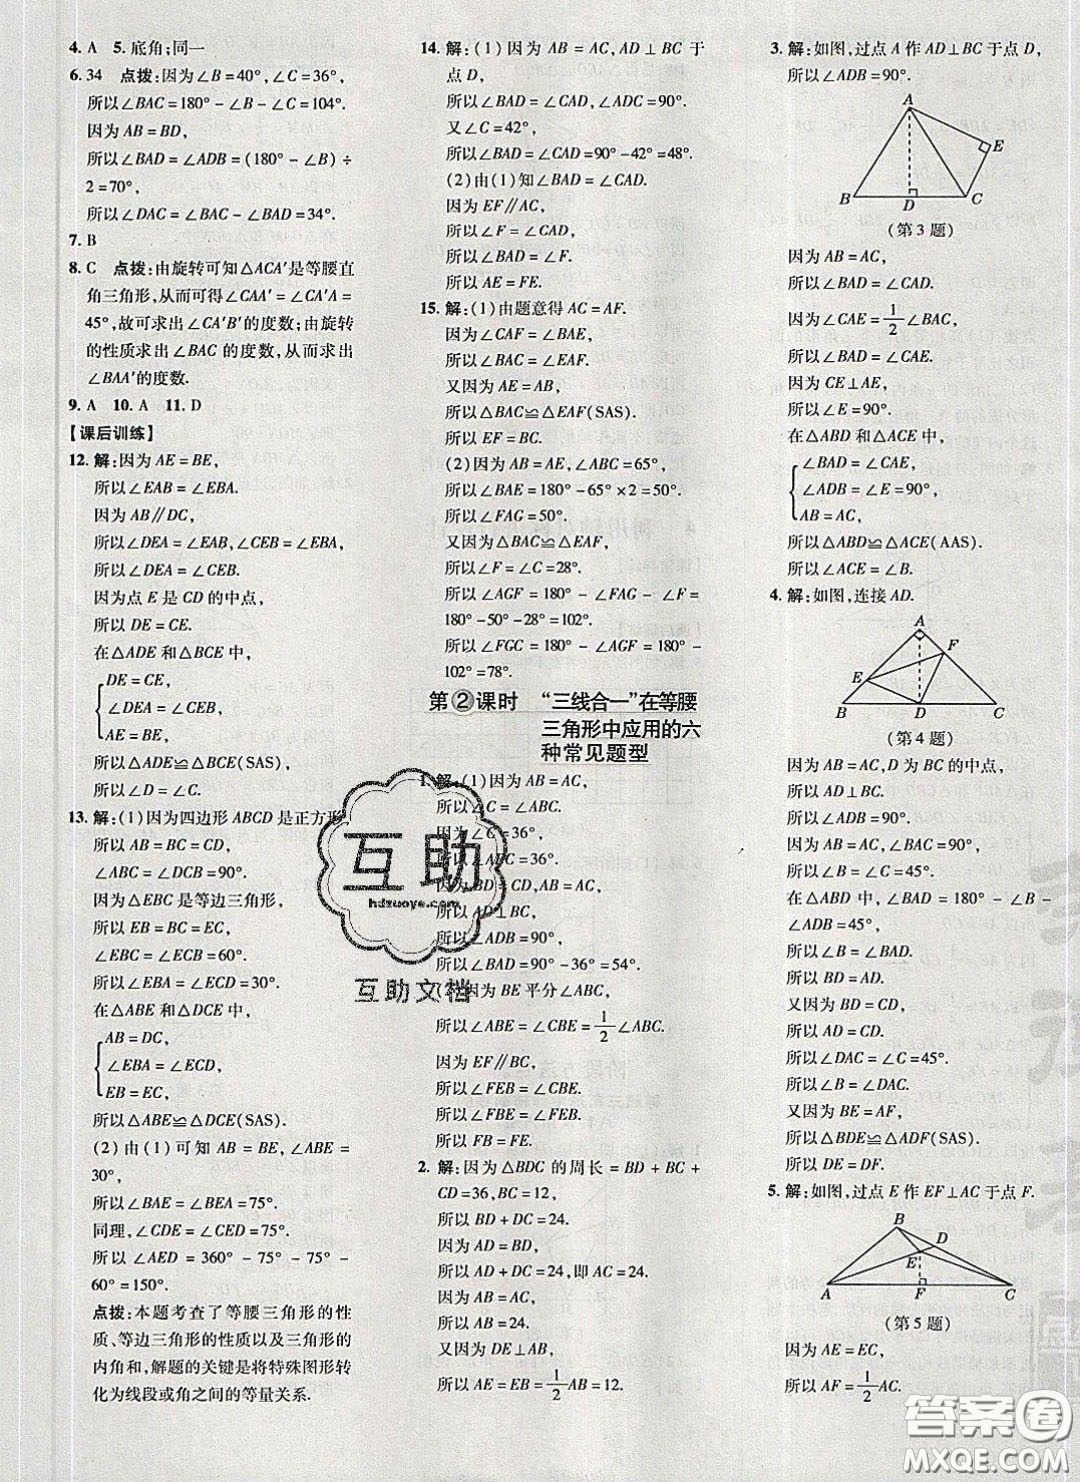 4. A　5. 底角;同一
6. 34　点拨:因为∠B=40°,∠C=36°,
所以∠BAC=180°-∠B-∠C=104°.
因为AB=BD,
所以∠BAD=∠ADB=(180°-∠B)÷
2=70°,
所以∠DAC=∠BAC-∠BAD=34°.
7. B
8. C　点拨:由旋转可知△ACA′是等腰直
角三角形,从而可得∠CAA′=∠CA′A=
45°,故可求出∠CA′B′的度数;由旋转
的性质求出∠BAC的度数,从而求出
∠BAA′的度数.
9. A　10. A　11. D
【课后训练】
12. 解:因为AE=BE,
所以∠EAB=∠EBA.
因为AB∥DC,
所以∠DEA=∠EAB,∠CEB=∠EBA.
所以∠DEA=∠CEB.
因为点E是CD的中点,
所以DE=CE.
在△ADE和△BCE中,
DE=CE,
∠DEA=∠CEB,
AE=BE,
所以△ADE≌△BCE(SAS).
所以∠D=∠C.
13. 解:(1)因为四边形ABCD是正方形,
所以AB=BC=CD,
∠ABC=∠DCB=90°.
因为△EBC是等边三角形,
所以BE=BC=EC,
∠EBC=∠ECB=60°.
所以∠EBA=∠ECD=30°.
在△ABE和△DCE中,
AB=DC,
∠EBA=∠ECD,
EB=EC,
所以△ABE≌△DCE(SAS).
(2)由(1)可知AB=BE,∠ABE=
30°,
所以∠BAE=∠BEA=75°.
同理,∠CDE=∠CED=75°.
所以∠AED=360°-75°-75°-
60°=150°.
点拨:本题考查了等腰三角形的性
质、等边三角形的性质以及三角形的
内角和,解题的关键是将特殊图形转
化为线段或角之间的等量关系.
14. 解:(1)因为AB=AC,AD⊥BC于
点D,
所以∠BAD=∠CAD,∠ADC=90°.
又∠C=42°,
所以∠BAD=∠CAD=90°-42°=48°.
(2)由(1)知∠BAD=∠CAD.
因为EF∥AC,
所以∠F=∠CAD.
所以∠BAD=∠F.
所以AE=FE.
15. 解:(1)由题意得AC=AF.
因为∠CAF=∠BAE,
所以∠BAC=∠EAF.
又因为AE=AB,
所以△BAC≌△EAF(SAS).
所以EF=BC.
(2)因为AB=AE,∠ABC=65°,
所以∠BAE=180°-65°×2=50°.
所以∠FAG=50°.
又因为△BAC≌△EAF,
所以∠F=∠C=28°.
所以∠AGF=180°-∠FAG-∠F=
180°-50°-28°=102°.
所以∠FGC=180°-∠AGF=180°-
102°=78°.
第2课时　“三线合一”在等腰
三角形中应用的六
种常见题型
1. 解:(1)因为AB=AC,
所以∠C=∠ABC.
因为∠C=36°,
所以∠ABC=36°.
因为BD=CD,AB=AC,
所以AD⊥BC.
所以∠ADB=90°,
所以∠BAD=90°-36°=54°.
(2)因为BE平分∠ABC,
所以∠ABE=∠CBE=1/2∠ABC.
因为EF∥BC,
所以∠FEB=∠CBE.
所以∠FBE=∠FEB.
所以FB=FE.
2. 解:因为△BDC的周长=BD+BC+
CD=36,BC=12,
所以BD+DC=24.
因为AD=BD,
所以AD+DC=24,即AC=24.
因为AB=AC,
所以AB=24.
又因为DE⊥AB,
所以AE=EB=1/2AB=12.
3. 解:如图,过点A作AD⊥BC于点D,
所以∠ADB=90°.
A
E
B
D
C
(第3题)
因为AB=AC,
所以∠BAD=∠CAD.
因为∠CAE=1/2∠BAC,
所以∠BAD=∠CAE.
因为CE⊥AE,
所以∠E=90°.
在△ABD和△ACE中,
∠BAD=∠CAE,
∠ADB=∠E=90°,
AB=AC,
所以△ABD≌△ACE(AAS).
所以ACE=∠B.
4. 解:如图,连接AD.
A
F
E
B
D
C
(第4题)
因为AB=AC,D为BC的中点,
所以AD⊥BC,
所以∠ADB=90°.
又因为∠BAC=90°,
所以∠B=∠C=45°.
在△ABD中,∠BAD=180°-∠B-
∠ADB=45°,
所以∠B=∠BAD.
所以BD=AD.
又因为BD=CD,
所以AD=CD.
所以∠DAC=∠C=45°.
所以∠B=∠DAC.
又因为BE=AF,
所以△BDE≌△ADF(SAS).
所以DE=DF.
5. 解:如图,过点E作EF⊥AC于点F.
B
D
E
A
F
C
(第5题)
因为AE=EC,
所以AF=1/2AC.
互助
hdzuoye.com
互助文档
答案圈
MXQE.COM